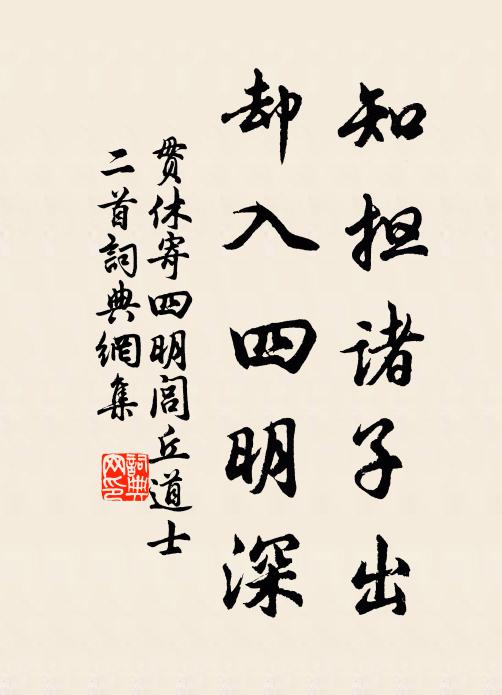 知担诸子出
却入四明深
贯休寄四明闾丘道士
二首詞典網集
詞典
网印